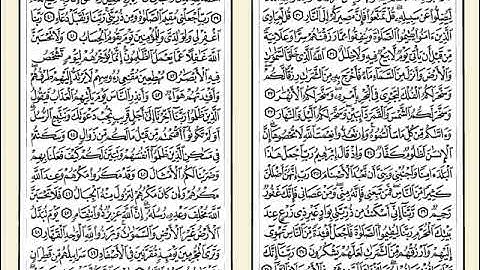 لِّيُضِلُّوا۟ عَن سَبِيلِهِۦ قُلْ تَمَتَّعُوا۟ فَإِنَّ مَصِيرَكُمْ إِلَى ٱلنَّارِ ٣٠ قُل لِّعِبَادِىَ
ٱلَّذِينَ ءَامَنُوا۟ يُقِيمُوا۟ ٱلصَّلَوٰةَ وَيُنفِقُوا۟ مِمَّا رَزَقْنَٰهُمْ سِرًّا وَعَلَانِيَةً
مِّن قَبْلِ أَن يَأْتِىَ يَوْمٌ لَّا بَيْعٌ فِيهِ وَلَا خِلَٰلٌ ٣١ ٱللَّهُ ٱلَّذِى خَلَقَ ٱلسَّمَٰوَٰتِ
وَٱلْأَرْضَ وَأَنزَلَ مِنَ ٱلسَّمَآءِ مَآءً فَأَخْرَجَ بِهِۦ مِنَ ٱلثَّمَرَٰتِ رِزْقًا لَّكُمْ
وَسَخَّرَ لَكُمُ ٱلْفُلْكَ لِتَجْرِىَ فِى ٱلْبَحْرِ بِأَمْرِهِۦ وَسَخَّرَ لَكُمُ ٱلْأَنْهَٰرَ ٣٢
وَسَخَّرَ لَكُمُ ٱلشَّمْسَ وَٱلْقَمَرَ دَآئِبَيْنِ وَسَخَّرَ لَكُمُ ٱلَّيْلَ وَٱلنَّهَارَ ٣٣
وَءَاتَىٰكُم مِّن كُلِّ مَا سَأَلْتُمُوهُ وَإِن تَعُدُّوا۟ نِعْمَتَ ٱللَّهِ لَا تُحْصُوهَآ إِنَّ
ٱلْإِنسَٰنَ لَظَلُومٌ كَفَّارٌ ٣٤ وَإِذْ قَالَ إِبْرَٰهِيمُ رَبِّ ٱجْعَلْ هَٰذَا
ٱلْبَلَدَ ءَامِنًا وَٱجْنُبْنِى وَبَنِىَّ أَن نَّعْبُدَ ٱلْأَصْنَامَ ٣٥ رَبِّ إِنَّهُنَّ أَضْلَلْنَ
كَثِيرًا مِّنَ ٱلنَّاسِ فَمَن تَبِعَنِى فَإِنَّهُۥ مِنِّى وَمَنْ عَصَانِى فَإِنَّكَ غَفُورٌ
رَّحِيمٌ ٣٦ رَّبَّنَآ إِنِّىٓ أَسْكَنتُ مِن ذُرِّيَّتِى بِوَادٍ غَيْرِ ذِى زَرْعٍ عِندَ
بَيْتِكَ ٱلْمُحَرَّمِ رَبَّنَا لِيُقِيمُوا۟ ٱلصَّلَوٰةَ فَٱجْعَلْ أَفْـِٔدَةً مِّنَ ٱلنَّاسِ تَهْوِىٓ
إِلَيْهِمْ وَٱرْزُقْهُم مِّنَ ٱلثَّمَرَٰتِ لَعَلَّهُمْ يَشْكُرُونَ ٣٧ رَبَّنَآ إِنَّكَ
رَبِّ ٱجْعَلْنِى مُقِيمَ ٱلصَّلَوٰةِ وَمِن ذُرِّيَّتِى رَبَّنَا وَتَقَبَّلْ دُعَآءِ ٤٠ رَبَّنَا
ٱغْفِرْ لِى وَلِوَٰلِدَىَّ وَلِلْمُؤْمِنِينَ يَوْمَ يَقُومُ ٱلْحِسَابُ ٤١ وَلَا تَحْسَبَنَّ
ٱللَّهَ غَٰفِلًا عَمَّا يَعْمَلُ ٱلظَّٰلِمُونَ إِنَّمَا يُؤَخِّرُهُمْ لِيَوْمٍ تَشْخَصُ
فِيهِ ٱلْأَبْصَٰرُ ٤٢ مُهْطِعِينَ مُقْنِعِى رُءُوسِهِمْ لَا يَرْتَدُّ إِلَيْهِمْ طَرْفُهُمْ
وَأَفْـِٔدَتُهُمْ هَوَآءٌ ٤٣ وَأَنذِرِ ٱلنَّاسَ يَوْمَ يَأْتِيهِمُ ٱلْعَذَابُ فَيَقُولُ
ٱلَّذِينَ ظَلَمُوا۟ رَبَّنَآ أَخِّرْنَآ إِلَىٰٓ أَجَلٍ قَرِيبٍ نُّجِبْ دَعْوَتَكَ وَنَتَّبِعِ ٱلرُّسُلَ
أَوَلَمْ تَكُونُوٓا۟ أَقْسَمْتُم مِّن قَبْلُ مَا لَكُم مِّن زَوَالٍ ٤٤ وَسَكَنتُمْ
فِى مَسَٰكِنِ ٱلَّذِينَ ظَلَمُوٓا۟ أَنفُسَهُمْ وَتَبَيَّنَ لَكُمْ كَيْفَ فَعَلْنَا بِهِمْ
وَضَرَبْنَا لَكُمُ ٱلْأَمْثَالَ ٤٥ وَقَدْ مَكَرُوا۟ مَكْرَهُمْ وَعِندَ ٱللَّهِ
مَكْرُهُمْ وَإِن كَانَ مَكْرُهُمْ لِتَزُولَ مِنْهُ ٱلْجِبَالُ ٤٦ فَلَا تَحْسَبَنَّ
ٱللَّهَ مُخْلِفَ وَعْدِهِۦ رُسُلَهُۥٓ إِنَّ ٱللَّهَ عَزِيزٌ ذُو ٱنتِقَامٍ ٤٧ يَوْمَ تُبَدَّلُ
ٱلْأَرْضُ غَيْرَ ٱلْأَرْضِ وَٱلسَّمَٰوَٰتُ وَبَرَزُوا۟ لِلَّهِ ٱلْوَٰحِدِ ٱلْقَهَّارِ ٤٨
وَتَرَى ٱلْمُجْرِمِينَ يَوْمَئِذٍ مُّقَرَّنِينَ فِى ٱلْأَصْفَادِ ٤٩ سَرَابِيلُهُم مِّن قَطِرَانٍ